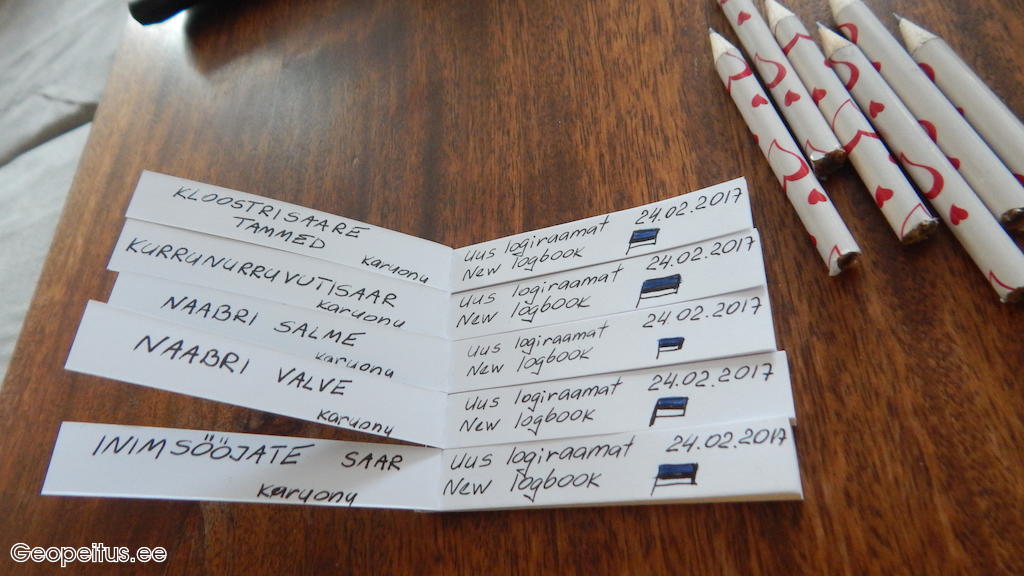 KLOOSTRISAARE
TAMMED
karuonu
Uus logiraamat 24.02.2017
New logbook
KURRUNURRUVUTISAAR
karuonu
Uus logiraamat 24.02.2017
New logbook
NAABRI SALME
karuonu
Uus logiraamat 24.02.2017
New logbook
NAABRI VALVE
karuonu
Uus logiraamat 24.02.2017
New logbook
INIMSÖÖJATE SAAR
karuonu
Uus logiraamat 24.02.2017
New logbook
Geopeitus.ee